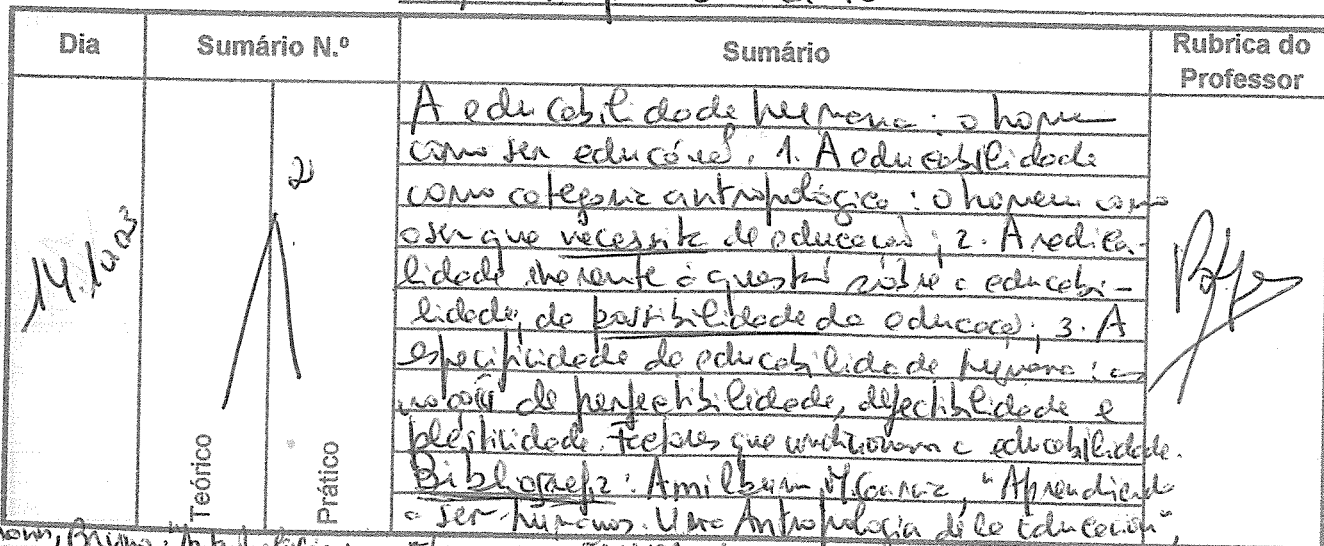 Dia
Sumário N.º
Sumário
Rubrica do
Professor
14.10.03
2
Teórico
Prático
A educabilidade humana: o homem
como ser educável. 1. A educabilidade
como categoria antropológica: o homem como
o ser que necessita de educação; 2. A radica-
lidade inerente à questão sobre a educabi-
lidade, da possibilidade da educação; 3. A
especificidade da educabilidade humana: as
noções de perfectibilidade, defectibilidade e
plasticidade. Factores que condicionam a educabilidade.
Bibliografia: Amilburu, M García, "Aprendiendo
a ser humanos. Una Antropología de la Educación",
Bruno: